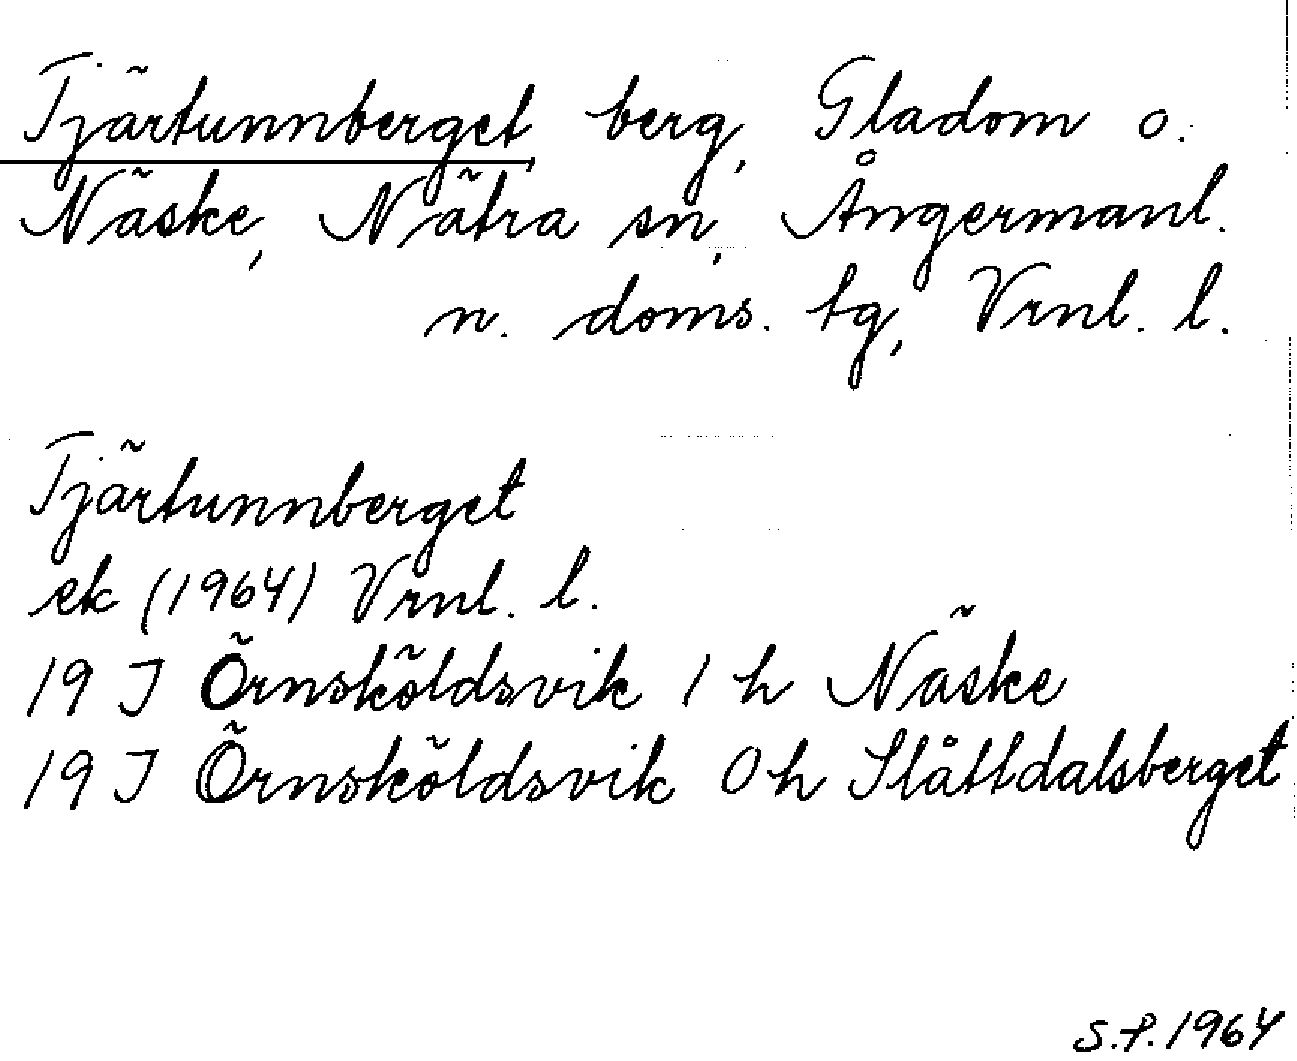 Tjärtunnberget, berg, Gladom o.
Näske, Nätra sn, Ångermanl.
n. doms. tg, Vrnl. l.
Tjärtunnberget
ek (1964) Vrnl. l.
19 J Örnsköldsvik 1 h Näske
19 J Örnsköldsvik 0 h Slåttdalsberget
S.P. 1964